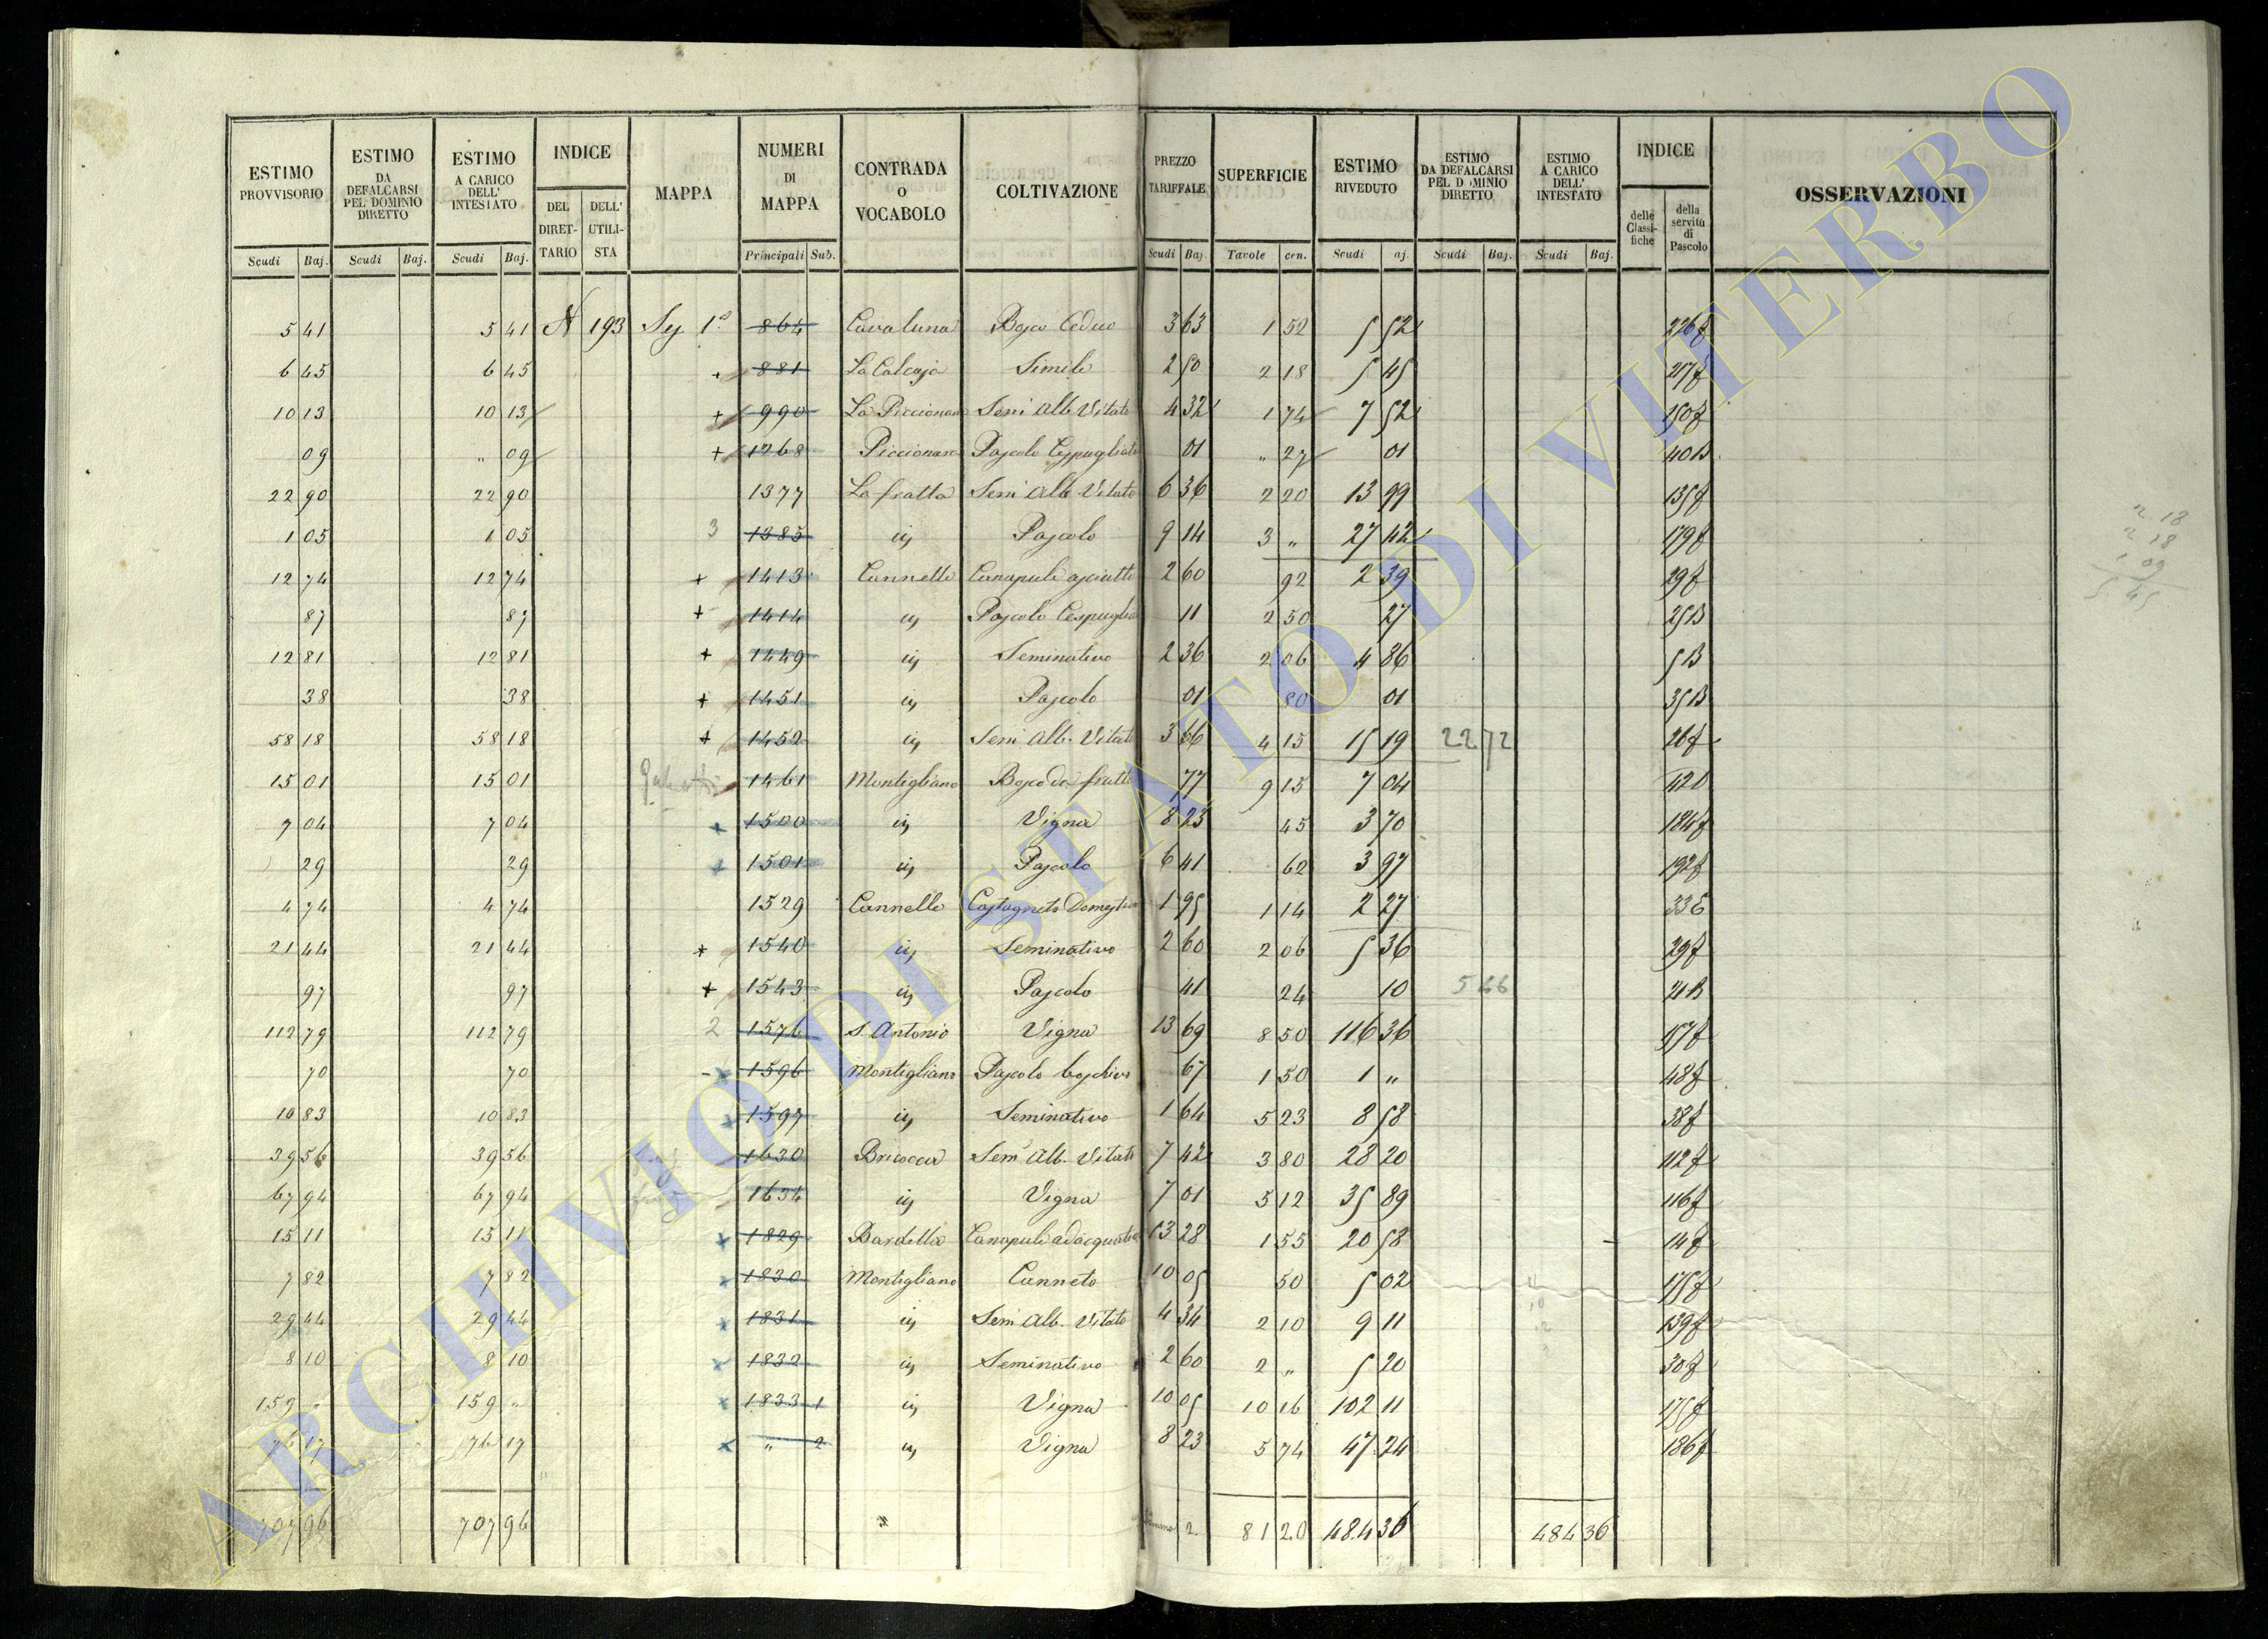 ESTIMO PROVVISORIO | ESTIMO DA DEFALCARSI PEL DOMINIO DIRETTO | ESTIMO A CARICO DELL' INTESTATO | INDICE | MAPPA | NUMERI DI MAPPA | CONTRADA O VOCABOLO | COLTIVAZIONE | PREZZO TARIFFALE | SUPERFICIE | ESTIMO RIVEDUTO | ESTIMO DA DEFALCARSI PEL DOMINIO DIRETTO | ESTIMO A CARICO DELL' INTESTATO | INDICE | OSSERVAZIONI
DEL DIRETTARIO | DELL' UTILISTA | delle Classifiche | della servitù di Pascolo
Scudi | Baj. | Scudi | Baj. | Scudi | Baj. | Principali | Sub. | Scudi | Baj. | Tavole | cen. | Scudi | aj. | Scudi | Baj. | Scudi | Baj.
5 41 | 5 41 | N 193 | 864 | Cavaluna | Bosco Ceduo | 3 63 | 1 52 | 5 52 | 226f
6 45 | 6 45 | + | 881 | La Calcaja | Simile | 2 50 | 2 18 | 5 45 | 217f
10 13 | 10 13 | + | 990 | Semi Alb. Vitato | 4 32 | 1 74 | 7 52 | 150f
09 | " 09 | + | 1268 | Piccionara | Pascolo Cespugliato | 01 | " 27 | 01 | 40B
22 90 | 22 90 | 1377 | La fratta | Sem Alb. Vitato | 6 36 | 2 20 | 13 99 | 135f
1 05 | 1 05 | 3 | 1385 | iy | Pascolo | 9 14 | 3 " | 27 42 | 179f
12 74 | 12 74 | + | 1413 | Cannelle | Canapule asciutto | 2 60 | 92 | 2 39 | 29f
87 | 87 | + | 1414 | iy | Pascolo Cespuglia | 11 | 2 50 | 27 | 25B
12 81 | 12 81 | + | 1449 | iy | Seminativo | 2 36 | 2 06 | 4 86 | 5B
38 | 38 | + | 1451 | iy | Pascolo | 01 | 80 | 01 | 35B
58 18 | 58 18 | + | 1452 | iy | Semi Alb. Vitato | 3 66 | 4 15 | 15 19 | 22 72 | 26f
15 01 | 15 01 | 1461 | Montigliano | Bosco da frutto | 77 | 9 15 | 7 04 | 42D
7 04 | 7 04 | x | 1500 | iy | Vigna | 8 23 | 45 | 3 70 | 184f
29 | 29 | x | 1501 | iy | Pascolo | 6 41 | 62 | 3 97 | 192f
4 74 | 4 74 | 1529 | Cannelle | Castagneto Domestico | 1 95 | 1 14 | 2 27 | 33E
21 44 | 21 44 | + | 1540 | iy | Seminativo | 2 60 | 2 06 | 5 36 | 29f
97 | 97 | + | 1543 | iy | Pascolo | 41 | 24 | 10 | 5 46 | 21B
112 79 | 112 79 | 2 | 1576 | S. Antonio | Vigna | 13 69 | 8 50 | 116 36 | 157f
70 | 70 | x | 1596 | Montigliano | Pascolo boschivo | 67 | 1 50 | 1 " | 48f
10 83 | 10 83 | x | 1597 | iy | Seminativo | 1 64 | 5 23 | 8 58 | 38f
39 56 | 39 56 | 1630 | Bricocca | Sem Alb. Vitato | 7 42 | 3 80 | 28 20 | 112f
67 94 | 67 94 | 1634 | iy | Vigna | 7 01 | 5 12 | 35 89 | 116f
15 11 | 15 11 | x | 1829 | Bardella | Canapule adacquativo | 13 28 | 1 55 | 20 58 | 14f
7 82 | 7 82 | x | 1830 | Montigliano | Canneto | 10 05 | 50 | 5 02 | 175f
29 44 | 29 44 | x | 1831 | iy | Sem Alb. Vitato | 4 34 | 2 10 | 9 11 | 139f
8 10 | 8 10 | x | 1832 | iy | Seminativo | 2 60 | 2 " | 5 20 | 30f
159 " | 159 " | x | 1833 1 | iy | Vigna | 10 05 | 10 16 | 102 11 | 175f
76 17 | 76 17 | x | " 2 | iy | Vigna | 8 23 | 5 74 | 47 24 | 186f
707 96 | 707 96 | 81 20 | 484 36 | 484 36
2 18
2 18
1 09
5 45
ARCHIVIO DI STATO DI VITERBO